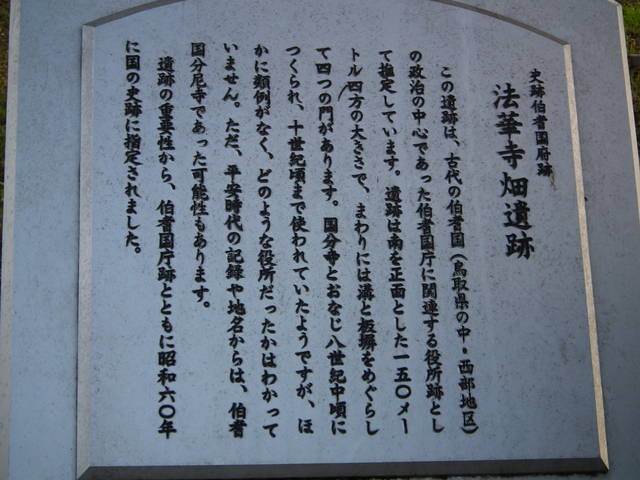 史跡伯耆国府跡
法華寺畑遺跡
この遺跡は、古代の伯耆国(鳥取県の中・西部地区)
の政治の中心であった伯耆国庁に関連する役所跡とし
て推定しています。遺跡は南を正面とした一五〇メー
トル四方の大きさで、まわりには溝と板塀をめぐらし
て四つの門があります。国分寺とおなじ八世紀中頃に
つくられ、十世紀頃まで使われていたようですが、ほ
かに類例がなく、どのような役所だったかはわかって
いません。ただ、平安時代の記録や地名からは、伯耆
国分尼寺であった可能性もあります。
遺跡の重要性から、伯耆国庁跡とともに昭和六〇年
に国の史跡に指定されました。